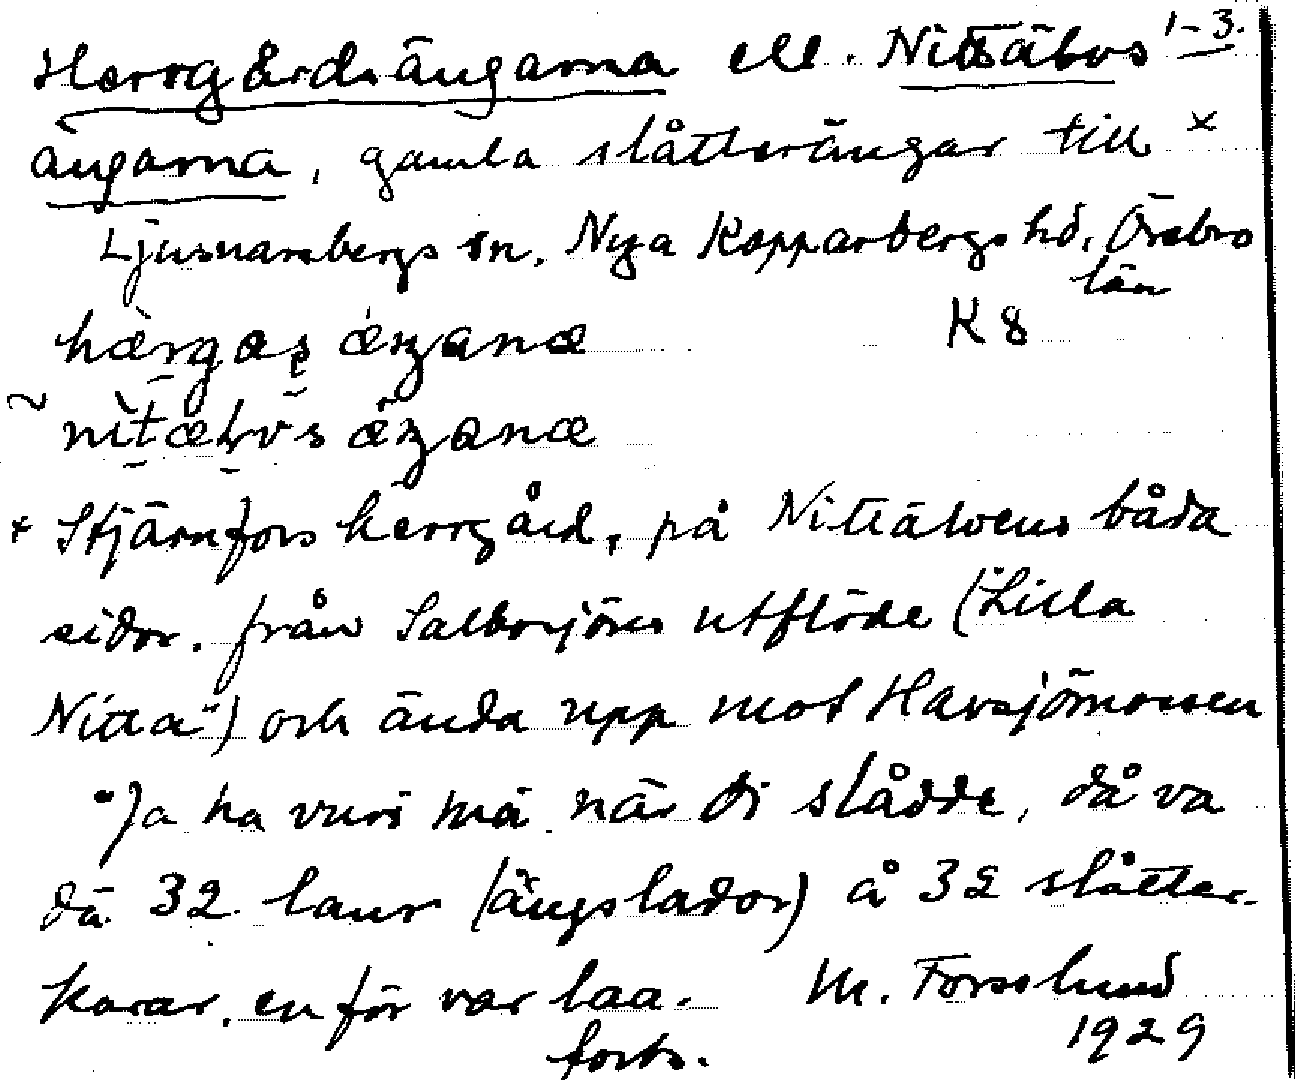 Herrgårdsängarna ell. Nittälvs 1-3.
ängarna, gamla slåtterängar till x
Ljusnarsbergs sn. Nya Kopparbergs hd, Örebro
län
hærgaṣ æŋana K 8
~ nitælvs æŋana
x Stjärnfors herrgård, på Nittälvens båda
sidor. från Salbosjöns utflöde ("Lilla
Nitta") och ända upp mot Havsjömossen
"Ja ha vuri mä när di slådde, då va
dä 32 laur (ängslador) å 32 slåtter-
karar, en för var laa.
M. Forsslund
1929
forts.